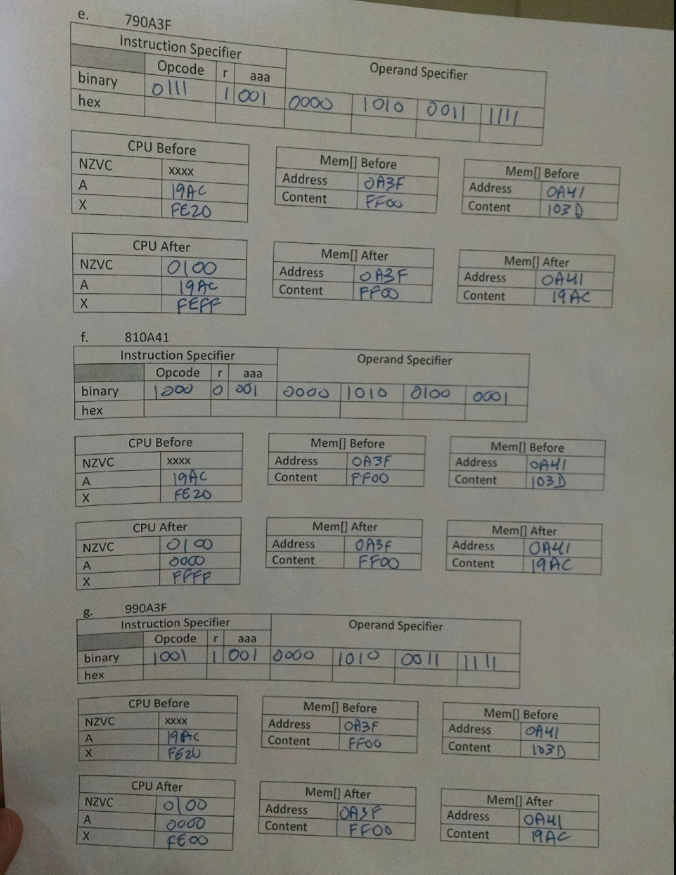 e. 790A3F
Instruction Specifier Operand Specifier
Opcode r aaa
binary 0111 1 001 0000 1010 0011 1111
hex
CPU Before Mem[] Before Mem[] Before
NZVC xxxx Address 0A3F Address 0A41
A 19AC Content FF00 Content 103D
X FE20
CPU After Mem[] After Mem[] After
NZVC 0100 Address 0A3F Address 0A41
A 19AC Content FF00 Content 19AC
X FEFF
f. 810A41
Instruction Specifier Operand Specifier
Opcode r aaa
binary 1000 0 001 0000 1010 0100 0001
hex
CPU Before Mem[] Before Mem[] Before
NZVC xxxx Address 0A3F Address 0A41
A 19AC Content FF00 Content 103D
X FE20
CPU After Mem[] After Mem[] After
NZVC 0100 Address 0A3F Address 0A41
A 0000 Content FF00 Content 19AC
X FFFF
g. 990A3F
Instruction Specifier Operand Specifier
Opcode r aaa
binary 1001 1 001 0000 1010 0011 1111
hex
CPU Before Mem[] Before Mem[] Before
NZVC xxxx Address 0A3F Address 0A41
A 19AC Content FF00 Content 103D
X FE20
CPU After Mem[] After Mem[] After
NZVC 0100 Address 0A3F Address 0A41
A 0000 Content FF00 Content 19AC
X FE00